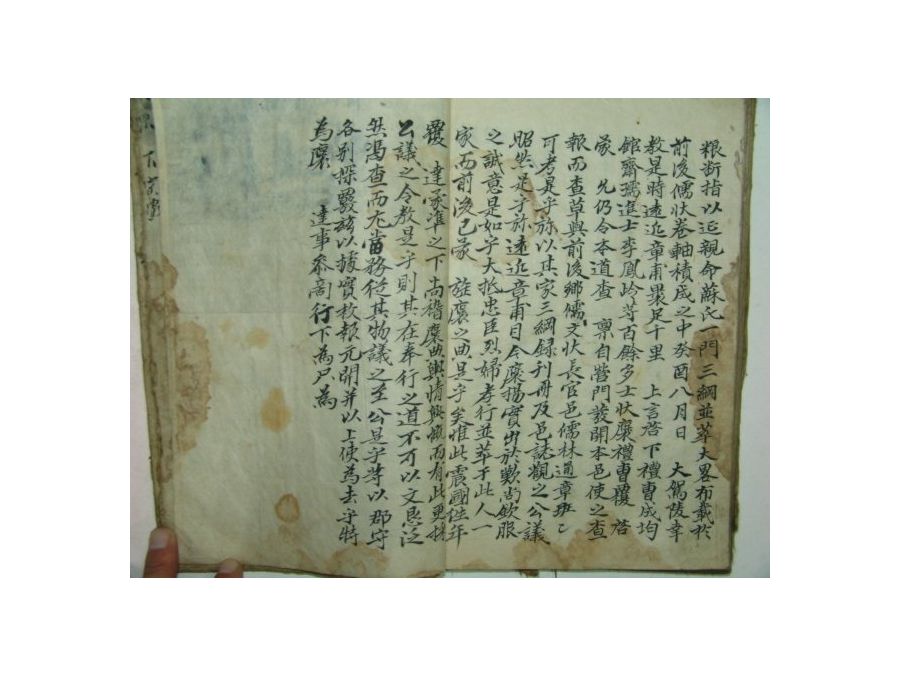 粮斷指以延親命蘇氏一門三綱並萃大畧布戴於
前後儒狀卷軸積成之中癸酉八月日 大駕陵幸
教是時遠近章甫裹足千里 上言啓下禮曹成均
館齋儒進士李鳳岭等百餘多士狀稟禮曹覆 啓
蒙 允仍令本道查 稟自營門發關本邑使之查
報而查草與前後鄕儒文狀長官邑儒林通章班〻
可考是乎旀以其家三綱錄刊冊及邑誌觀之公議
昭然是乎旀遠近章甫目今稟揚實出於歎尙欽服
之誠意是如乎大抵忠臣烈婦孝行並萃于此人一
家而前後已蒙 旌褒之典是乎矣惟此震國 年
覆 達承準之下尙稽褒典輿情興慨而有此更
公議之令敎是乎則其在奉行之道不可以文具泛
然 查而尤當務從其物議之至公是乎等以 郡守
各別採覈玆以據實枚報元開并以上使爲去乎特
爲稟 達事參商行下爲只爲